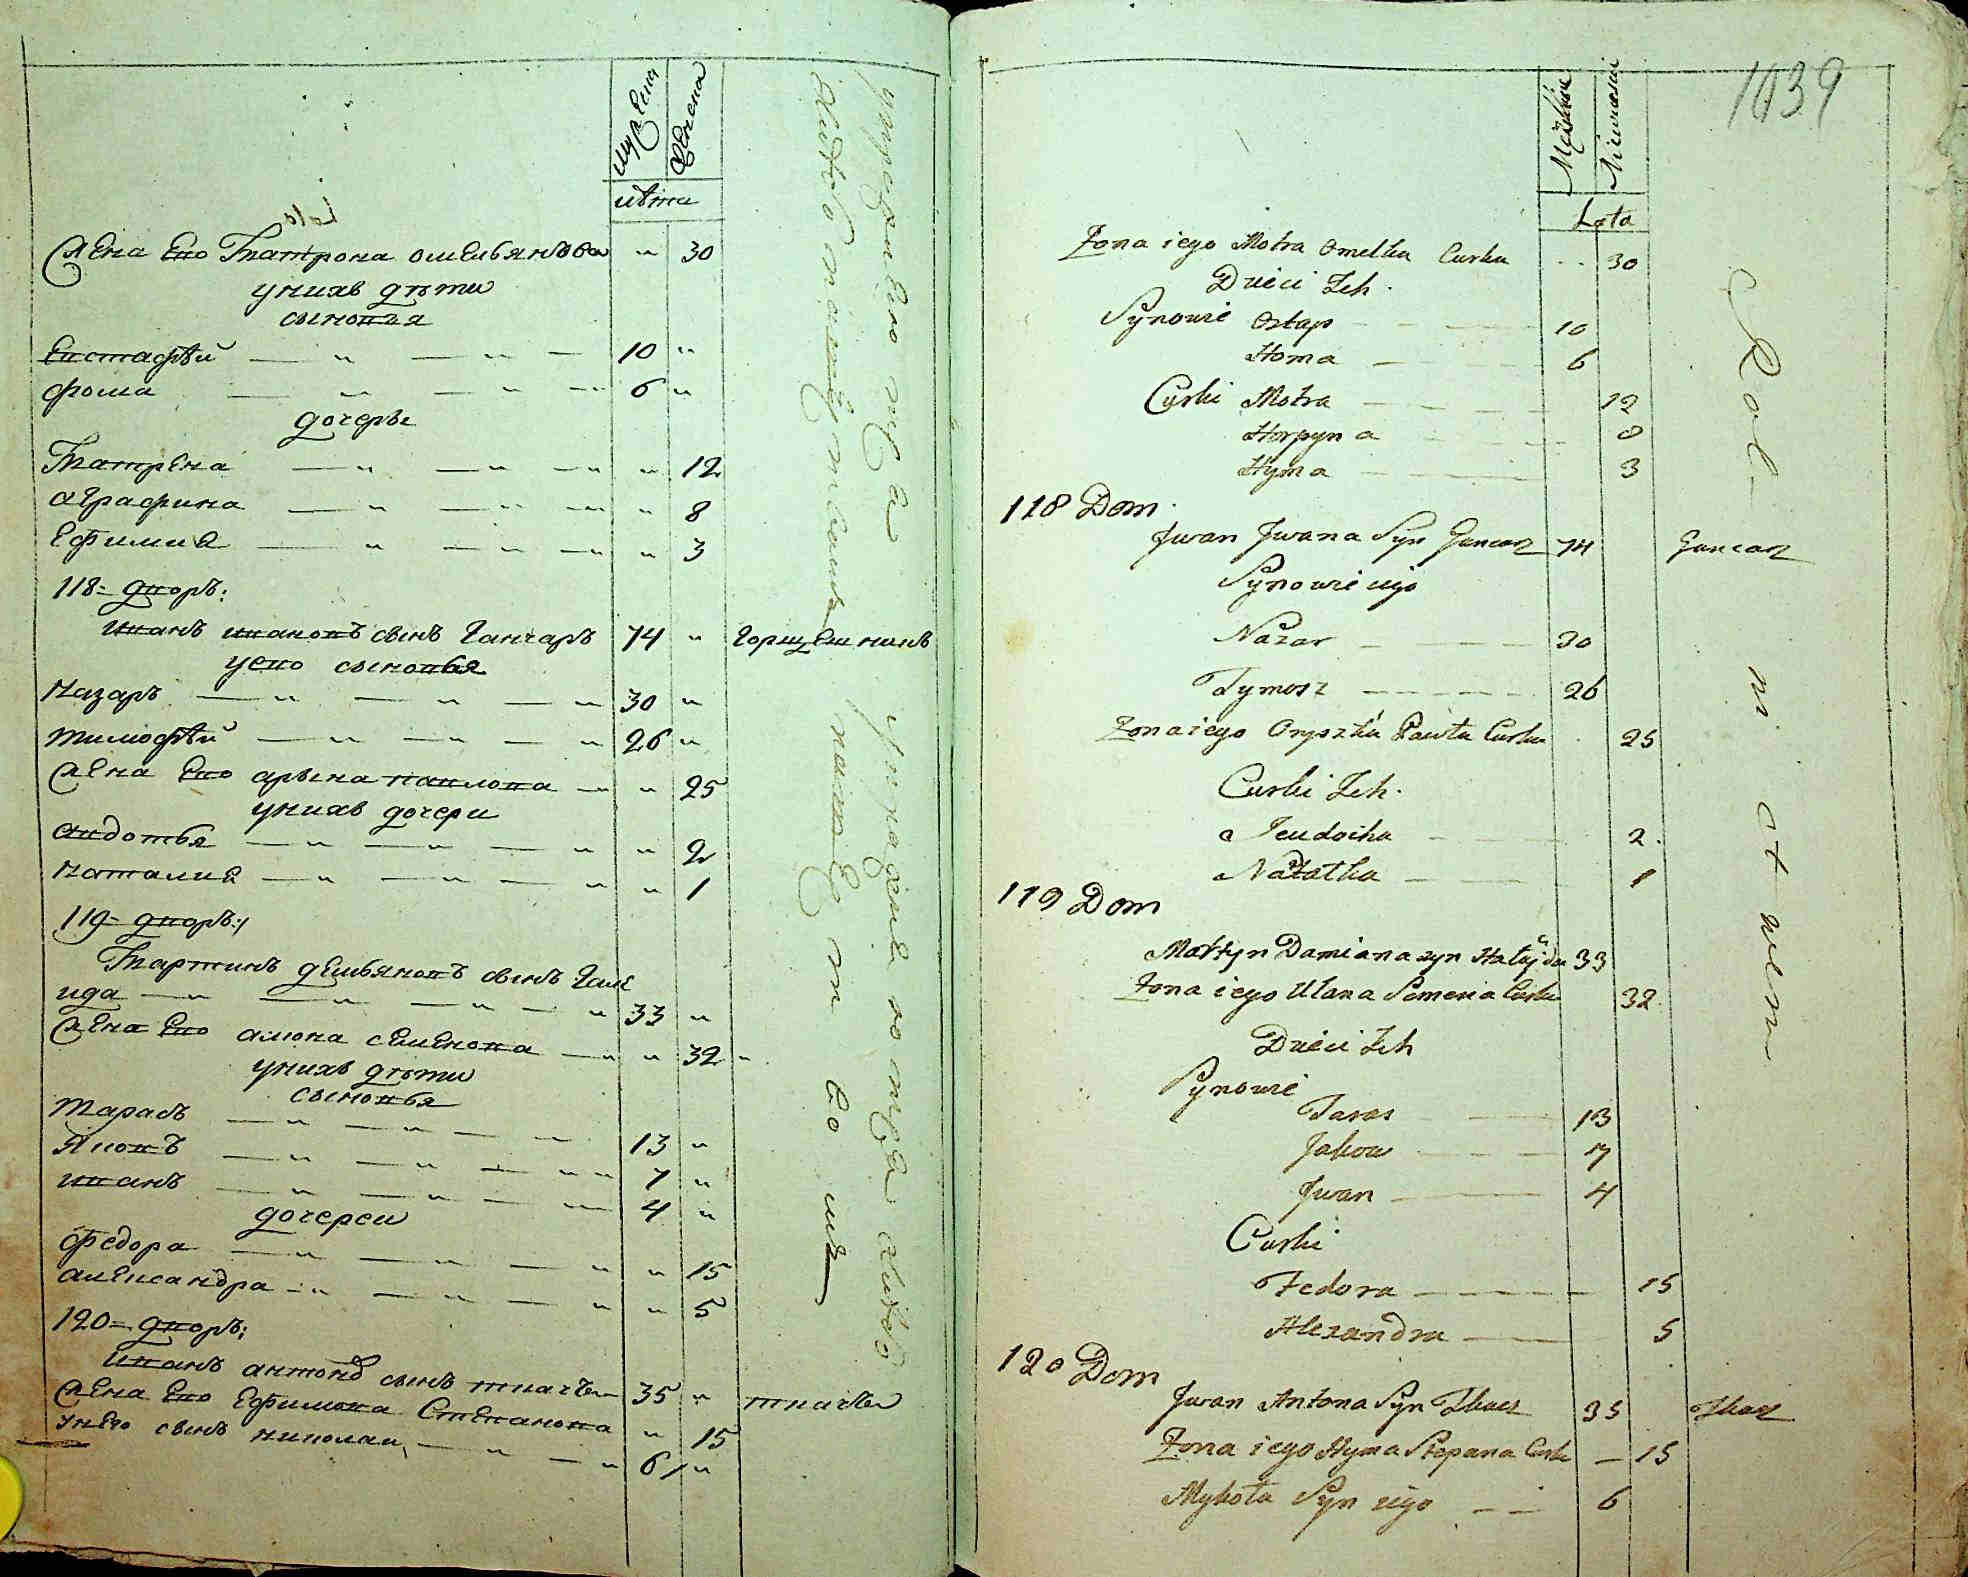 мужеска
женска
лѣта
жена его Матрона омельянова " 30
у нихъ дѣти
сыновья
Евстафѣй — " — " — 10 "
фома — " — " — 6 "
дочерьи
Матрена — " — " — " 12
аграфина — " — " — " 8
ефимия — " — " — " 3
118= дворъ:
иванъ ивановъ сынъ Ганчаръ 74 " горшешникъ
у его сыновья
Назаръ — " — " — " 30 "
тимофѣй — " — " — " 26 "
жена его арына павлова — " " 25
у нихъ дочери
авдотья — " — " — " " 2
наталия — " — " — " " 1
119= дворъ:
Мартинъ демьяновъ сынъ Гала
ида — " — " — " 33 "
жена его алюна семенова — " " 32 "
у нихъ дѣти
сыновья
тарасъ — " — " — 13 "
яковъ — " — " — " 7 "
иванъ — " — " — " 4 "
дочереи
федора — " — " — " " 15
александра — " — " — " " 5
120= дворъ:
иванъ антоновъ сынъ ткачъ — 35 " ткачъ
жена его ефимова Степанова " 15
у него сынъ николаи, — " — " 6 "
1039
Męzkie
Niewieście
Lata
Żona iego Motra Omelka Curka .. 30
Dzieci Ich.
Synowie Ostap — — — 10
Homa — — — 6
Curki Motra — — — 12
Horpyna — — — 8
Hyma — — — 3
118 Dom
Jwan Jwana Syn Gancarz 74 Gancarz
Synowie iego
Nazar — — — 30
Tymosz — — — 26
Żona iego Oryszka Pawła Curka . 25
Curki Ich.
Jeudocha — — — 2.
Natałka — — — 1
119 Dom
Martyn Damiana syn Hałajda 33
Żona iego Ulana Semena Curka 32
Dzieci Ich
Synowie
Taras — — 13
Jakow — — — 7
Jwan — — — 4
Curki
Fedora — — — 15
Alexandra — — 5
120 Dom
Jwan Antona Syn Tkacz 35 Tkacz
Żona iego Hyma Stepana Curka — 15
Mykoła Syn iego — — 6